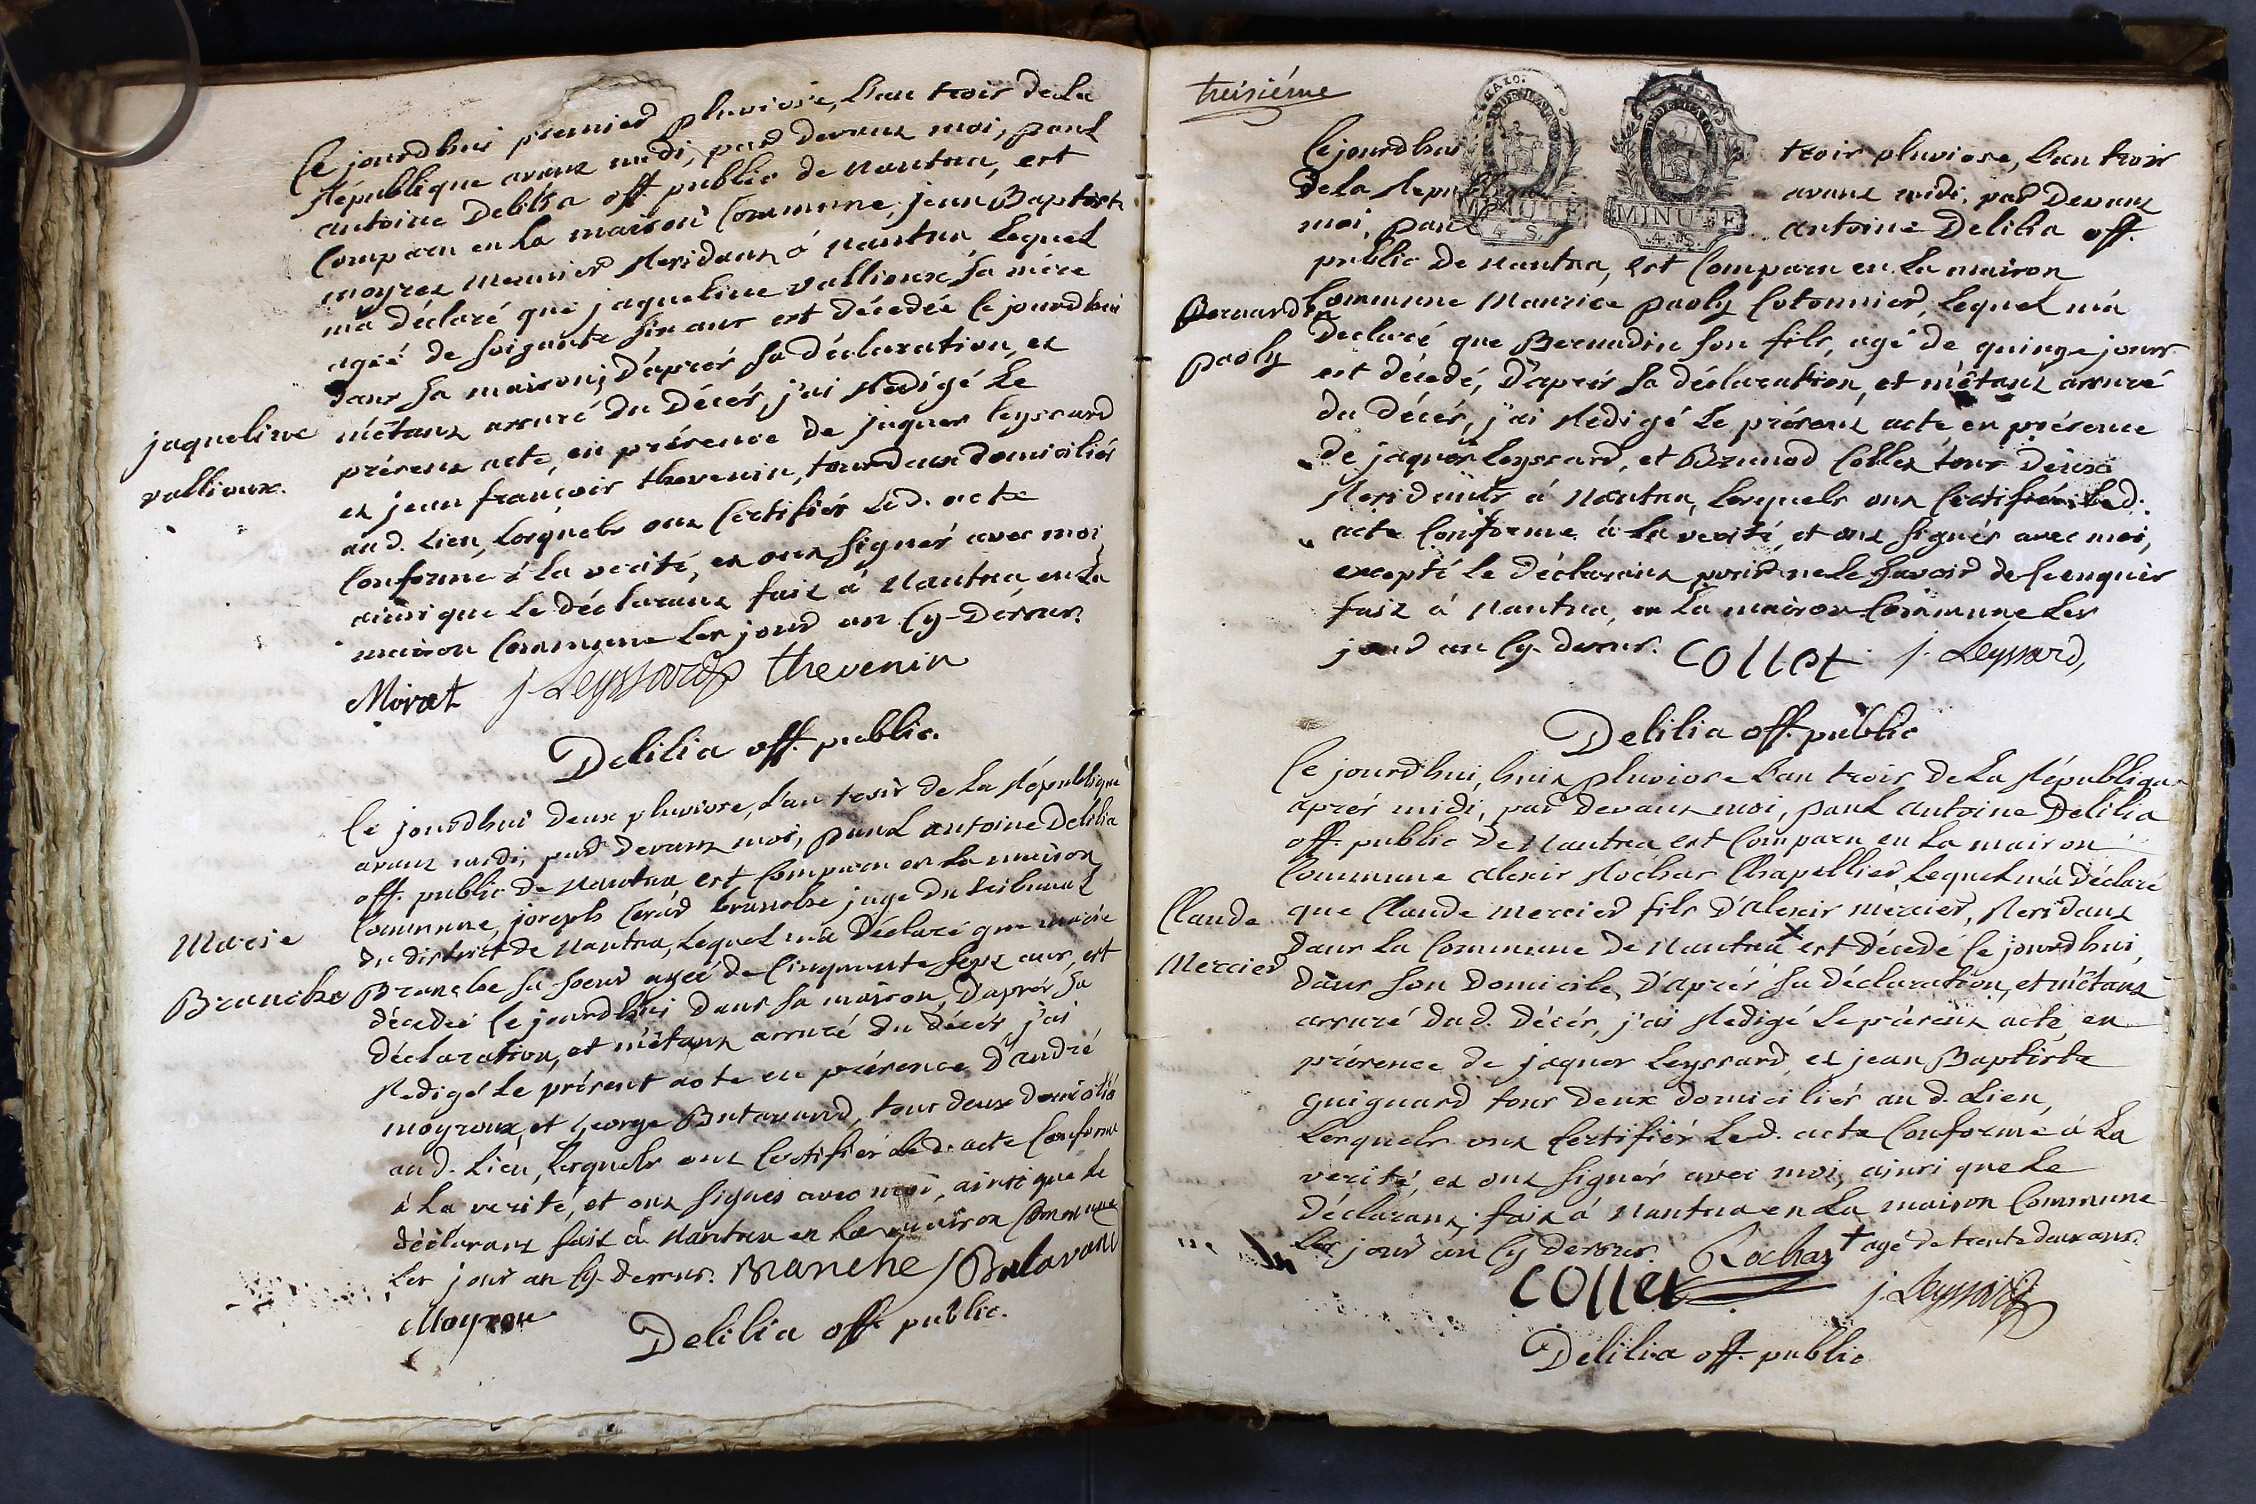 Ce jourdhui premier pluviose, L'an trois de La
République avant midi, par devant moi, paul
antoine Delilia off public de Nantua, est
Comparu en la maison Commune, jean Baptiste
moyret meunier Residant à nantua Lequel
m'a déclaré que jaqueline vallioux, sa mére
agée de soizante six ans est décedée Ce jourdhui
dans sa maison, D'aprés sa déclaration, et
jaqueline
vallioux.
m'étant assuré Du Décés, j'ai Redigé Le
présent acte, en présence de jaques Leyssard
et jean françois thevenin, tous deux domiciliés
aud. Lieu, Lesquels ont Certifiés Led. acte
Conforme à La verité, et ont signés avec moi
ainsi que Le déclarant fait à Nantua en La
maison Commune Les jour an Cy-Dessus.
Moiret j. Leyssard thevenin
Delilia off. public.
Ce jourdhui deux pluviose, L'an trois de La République
avant midi, par devant moi, paul antoine Delilia
off. public de Nantua, est Comparu en La maison
Commune, joseph juge Du tribunal
Du district de Nantua, Lequel m'a Déclaré que marie
Marie
Branche
Branche sa soeur agée de Cinquante sept ans, est
décedée Ce jourdhui dans sa maison, D'aprés sa
déclaration, et m'étant assuré Du décés, j'ai
Redigé Le présent acte en présence D'andré
moyroux, et George Butavand, tous deux domiciliés
aud. Lieu, Lesquels ont Certifiés Led. acte Conforme
à La verité, et ont signés avec moi, ainsi que Le
déclarant fait à Nantua en La maison Commune
Les jour an Cy-dessus. Branche Butavand
Moyroux
Delilia off. public.
treisiéme
MINUTE
4. S.
MINUTE
4. S.
Ce jourdhui trois pluviose, L'an trois
De La Repu avant midi, par Devant
moi, paul antoine Delilia off.
public De Nantua, est Comparu en La maison
Commune Maurice paoly Cotonnier, Lequel m'a
Bernardin
paoly
Declaré que Bernadin son fils, agé de quinze jours
est décedé, D'aprés sa déclaration, et m'étant assuré
du décés, j'ai Redigé Le présent acte en présence
de jaques Leyssard, et Brunod Collet tous Deux
Residants à Nantua, Lesquels ont Certifiés Led.
acte Conforme à La verité, et ont signés avec moi,
excepté Le déclarant pour ne Le savoir de Ce enquis
fait à Nantua, en La maison Commune Les
jour an Cy-dessus. Collet j. Leyssard,
Delilia off. public
Ce jourd'hui, huit pluviose L'an trois de La République
aprés midi, par devant moi, paul antoine Delilia
off. public De Nantua est Comparu en La maison
Commune alexis Rochas Chapellier, Lequel m'a Déclaré
Claude
Mercier
que Claude mercier fils D'alexis mercier, Residant
Dans La Commune de Nantua x est décedé Ce jourdhui,
dans son Domicile, D'aprés sa déclaration, et m'étant
assuré Dud. Décés, j'ai Redigé Le présent acte, en
présence de jaques Leyssard, et jean Baptiste
guignard tous Deux domiciliés aud. Lieu,
Lesquels ont Certifiés Led. acte Conforme à La
verité, et ont signés avec moi, ainsi que Le
déclarant, fait à Nantua en La maison Commune
Les jour an Cy dessus. Rochas + agé de trente deux ans.
Collet j. Leyssard
Delilia off. public